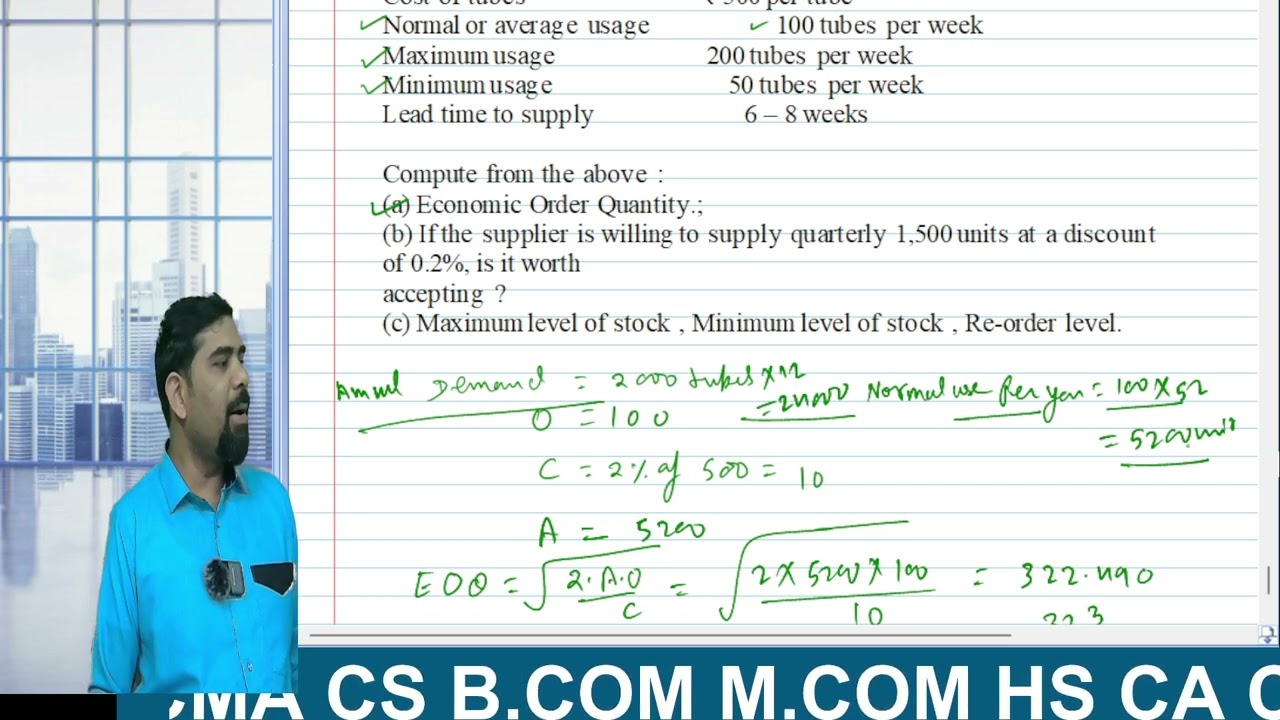 Cost of tubes ₹ 500 per tube
Normal or average usage 100 tubes per week
Maximum usage 200 tubes per week
Minimum usage 50 tubes per week
Lead time to supply 6 – 8 weeks
Compute from the above :
(a) Economic Order Quantity.;
(b) If the supplier is willing to supply quarterly 1,500 units at a discount
of 0.2%, is it worth
accepting ?
(c) Maximum level of stock , Minimum level of stock , Re-order level.
Annual Demand = 2000 tubes × 12
= 24000 Normal use Per year = 100 × 52
O = 100
= 5200 units
C = 2% of 500 = 10
A = 5200
EOQ = √ 2.A.O / C = √ 2 × 5200 × 100 / 10 = 322.490
323
MA CS B.COM M.COM HS CA C